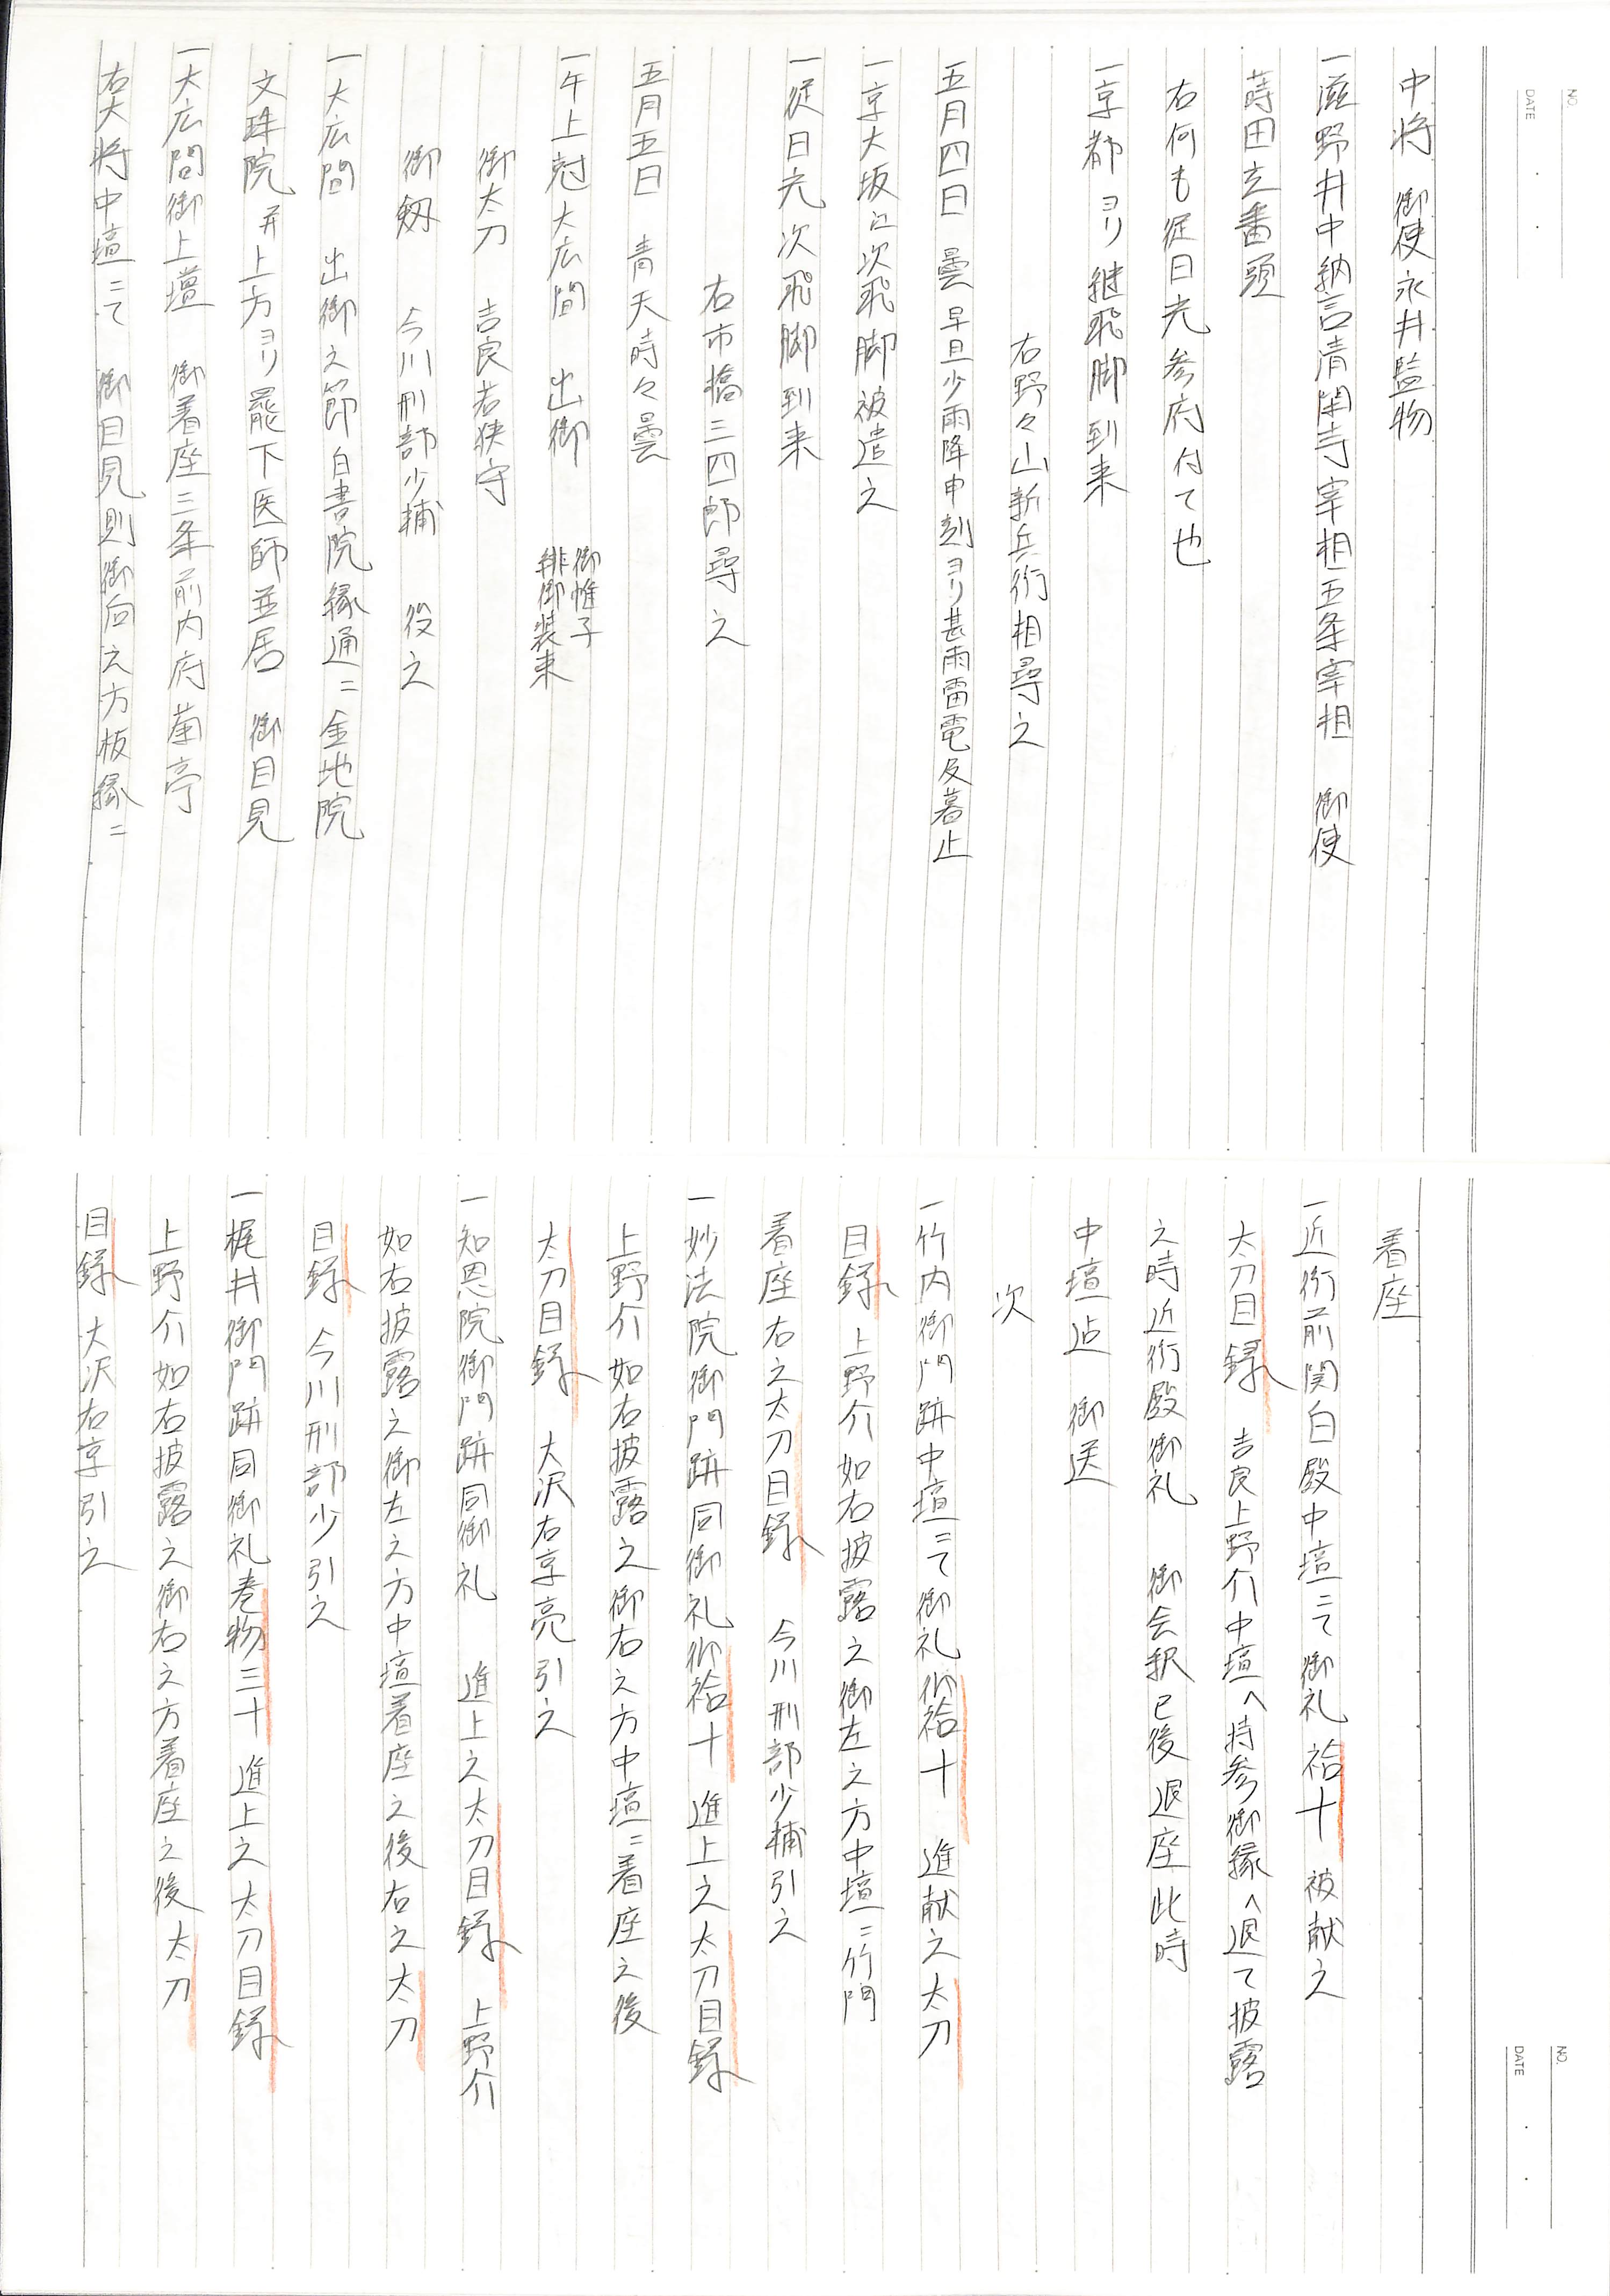 NO.
DATE
中将　御使永井監物
一滋野井中納言清閑寺宰相五条宰相　御使
蒔田玄番頭
右何も従日光参府付て也
一京都ヨリ継飛脚到来
右野々山新兵衛相尋之
五月四日　曇　早旦少雨降申刻ヨリ甚雨雷電及暮止
一京大坂江次飛脚被遣之
一従日光次飛脚到来
右市橋三四郎尋之
五月五日　青天時々曇
一午上尅大広間　出御　御帷子
緋御装束
御太刀　吉良若狭守
御剱　今川刑部少輔　役之
一大広間　出御之節白書院縁通ニ金地院
文珠院并上方ヨリ罷下医師並居　御目見
一大広間御上壇　御着座二条前内府菊亭
右大将中壇ニて　御目見則御向之方板縁ニ
NO.
DATE
着座
一近衛前関白殿中壇ニて御礼袷十　被献之
太刀目録　吉良上野介中壇へ持参御縁へ退て披露
之時近衛殿御礼　御会釈已後退座此時
中壇迠　御送
次
一竹内御門跡中壇ニて御礼御袷十　進献之太刀
目録　上野介如右披露之御左之方中壇ニ竹門
着座右之太刀目録　今川刑部少輔引之
一妙法院御門跡同御礼御袷十　進上之太刀目録
上野介如右披露之御右之方中壇ニ着座之後
太刀目録　大沢右京亮引之
一知恩院御門跡同御礼　進上之太刀目録　上野介
如右披露之御左之方中壇着座之後右之太刀
目録　今川刑部少引之
一梶井御門跡同御礼巻物三十　進上之太刀目録
上野介如右披露之御右之方着座之後太刀
目録　大沢右京引之